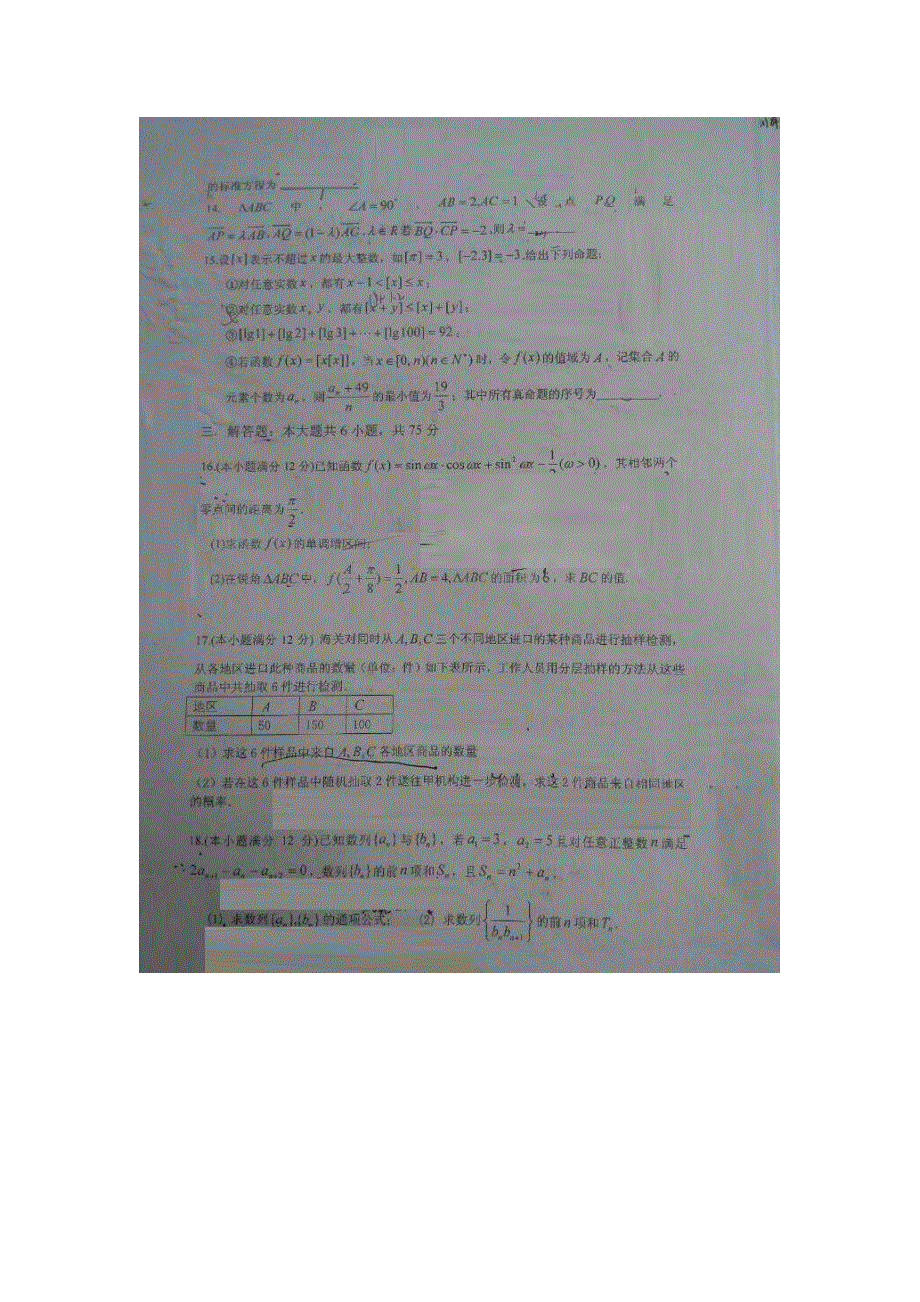 的标准方程为
14. ΔABC 中, ∠A=90°, AB=2,AC=1 设 点 P,Q 满 足
AP=λAB, AQ=(1-λ)AC, λ∈R 若 BQ·CP=-2, 则λ=
15.设[x]表示不超过x的最大整数,如[π]=3, [-2.3]=-3.给出下列命题:
①对任意实数x,都有x-1<[x]≤x;
②对任意实数x,y,都有[x+y]≤[x]+[y];
③[lg1]+[lg2]+[lg3]+⋯+[lg100]=92;
④若函数f(x)=[x[x]],当x∈[0,n)(n∈N*)时,令f(x)的值域为A,记集合A的
元素个数为aₙ,则(aₙ+49)/n的最小值为19/3,其中所有真命题的序号为
三.解答题:本大题共6小题,共75分
16.(本小题满分12分)已知函数f(x)=sinωx·cosωx+sin²ωx-1/2(ω>0),其相邻两个
零点间的距离为π/2.
(1)求函数f(x)的单调增区间;
(2)在锐角ΔABC中, f(A/2+π/8)=1/2, AB=4,ΔABC的面积为6,求BC的值.
17.(本小题满分12分) 海关对同时从A,B,C三个不同地区进口的某种商品进行抽样检测,
从各地区进口此种商品的数量(单位:件)如下表所示,工作人员用分层抽样的方法从这些
商品中共抽取6件进行检测.
地区 A B C
数量 50 150 100
(1)求这6件样品中来自A,B,C各地区商品的数量
(2)若在这6件样品中随机抽取2件送往甲机构进一步检测,求这2件商品来自相同地区
的概率.
18.(本小题满分 12 分)已知数列{aₙ}与{bₙ},若a₁=3, a₂=5且对任意正整数n满足
2aₙ₊₁-aₙ-aₙ₊₂=0,数列{bₙ}的前n项和Sₙ,且Sₙ=n²+aₙ.
(1)求数列{aₙ},{bₙ}的通项公式; (2)求数列{1/(bₙbₙ₊₁)}的前n项和Tₙ.